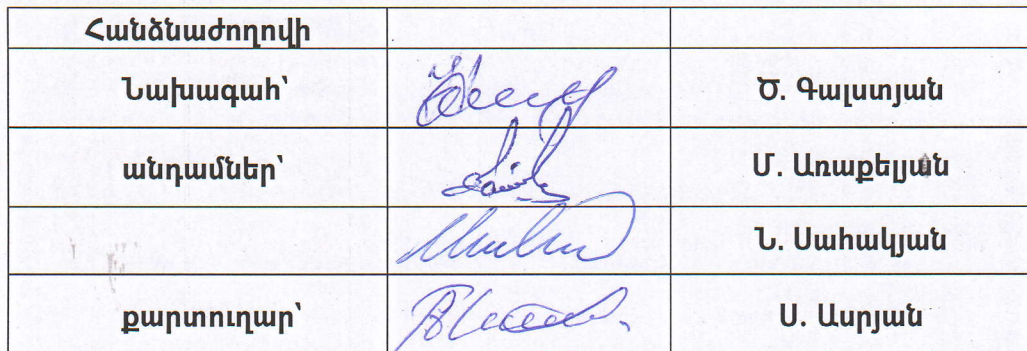 Հանձնաժողովի
Նախագահ՝ Ծ. Գալստյան
անդամներ՝ Մ. Առաքելյան
Ն. Սահակյան
քարտուղար՝ Ս. Ասրյան